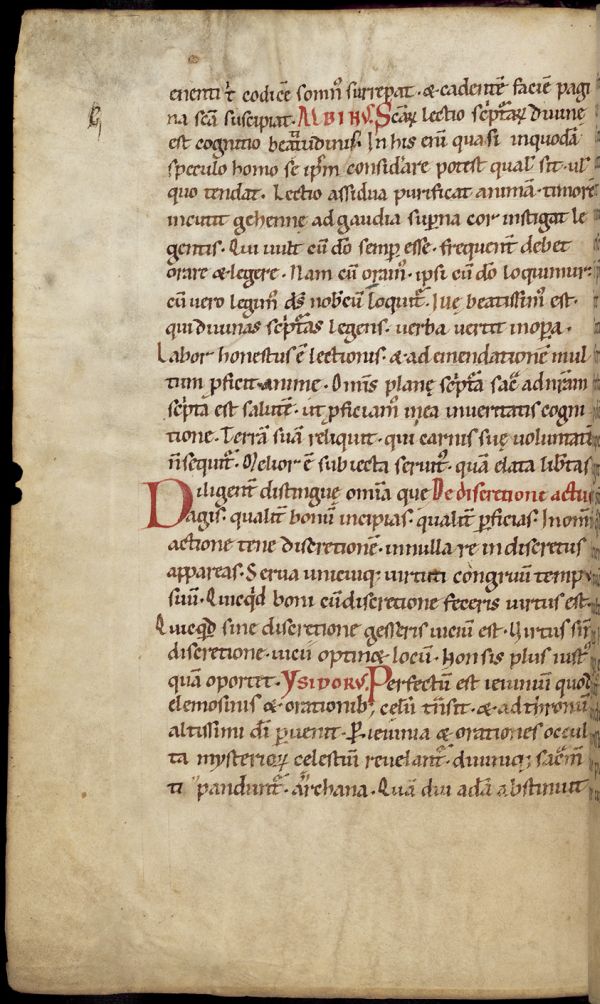 enenti t codicē somn̄ surrepat · & cadentē faciē pagi
na sc̄a suscipiat · ALBINVS. Scaꝝ lectio sc̄ptaꝝ divinę
est cognitio beatitudinis. In his eni quasi inquodā
speculo homo se ip̄m considare potest qual' sit · ul'
quo tendat. Lectio assidua purificat animā · timorē
incutit gehennę ad gaudia supna cor instigat le
gentis. Qui uult cū dō semp esse · frequent debet
orare & legere. Nam cū oram · ipsi cū dō loquimur:
cū uero legim · ds nobcū loquit. Uę beatissim est ·
qui diuinas sc̄ptas legens · uerba uertit inopa.
Labor honestus ē lectionis · & ad emendationē mul
tum pficit animę. Omīs planę sc̄pta sac̄ ad nr̄am
sc̄pta est salutē · ut pficiam inea inueritatis cogni
tione. Terrā suā reliquit · qui carnis suę uoluntatē
n̄ sequit. Melior ē subiecta seruit · quā elata libtas
Diligent distingue omīa que De discretione actus
agis · qualit bonū incipias · qualit pficias. In om̄i
actione tene discretionē · in nulla re indiscretus
appareas. Serua unicuiq; uirtuti congruū temp
suū. Quicqd boni cū discretione feceris uirtus est.
Quicqd sine discretione gesseris uiciū est. Uirtus sin̄
discretione · uicii optin& locū. Non sis plus iust
quā oportet. YSIDORVS. Perfectū est ieiuniū quod
elemosinis & orationib; celū tn̄sit · & ad thronū
altissimi di puenit. P ieiunia & orationes occul
ta mysterioꝝ celestiū reuelant · diuiniq; sac̄m
ti pandunt · archana. Quā diu adā abstinuit